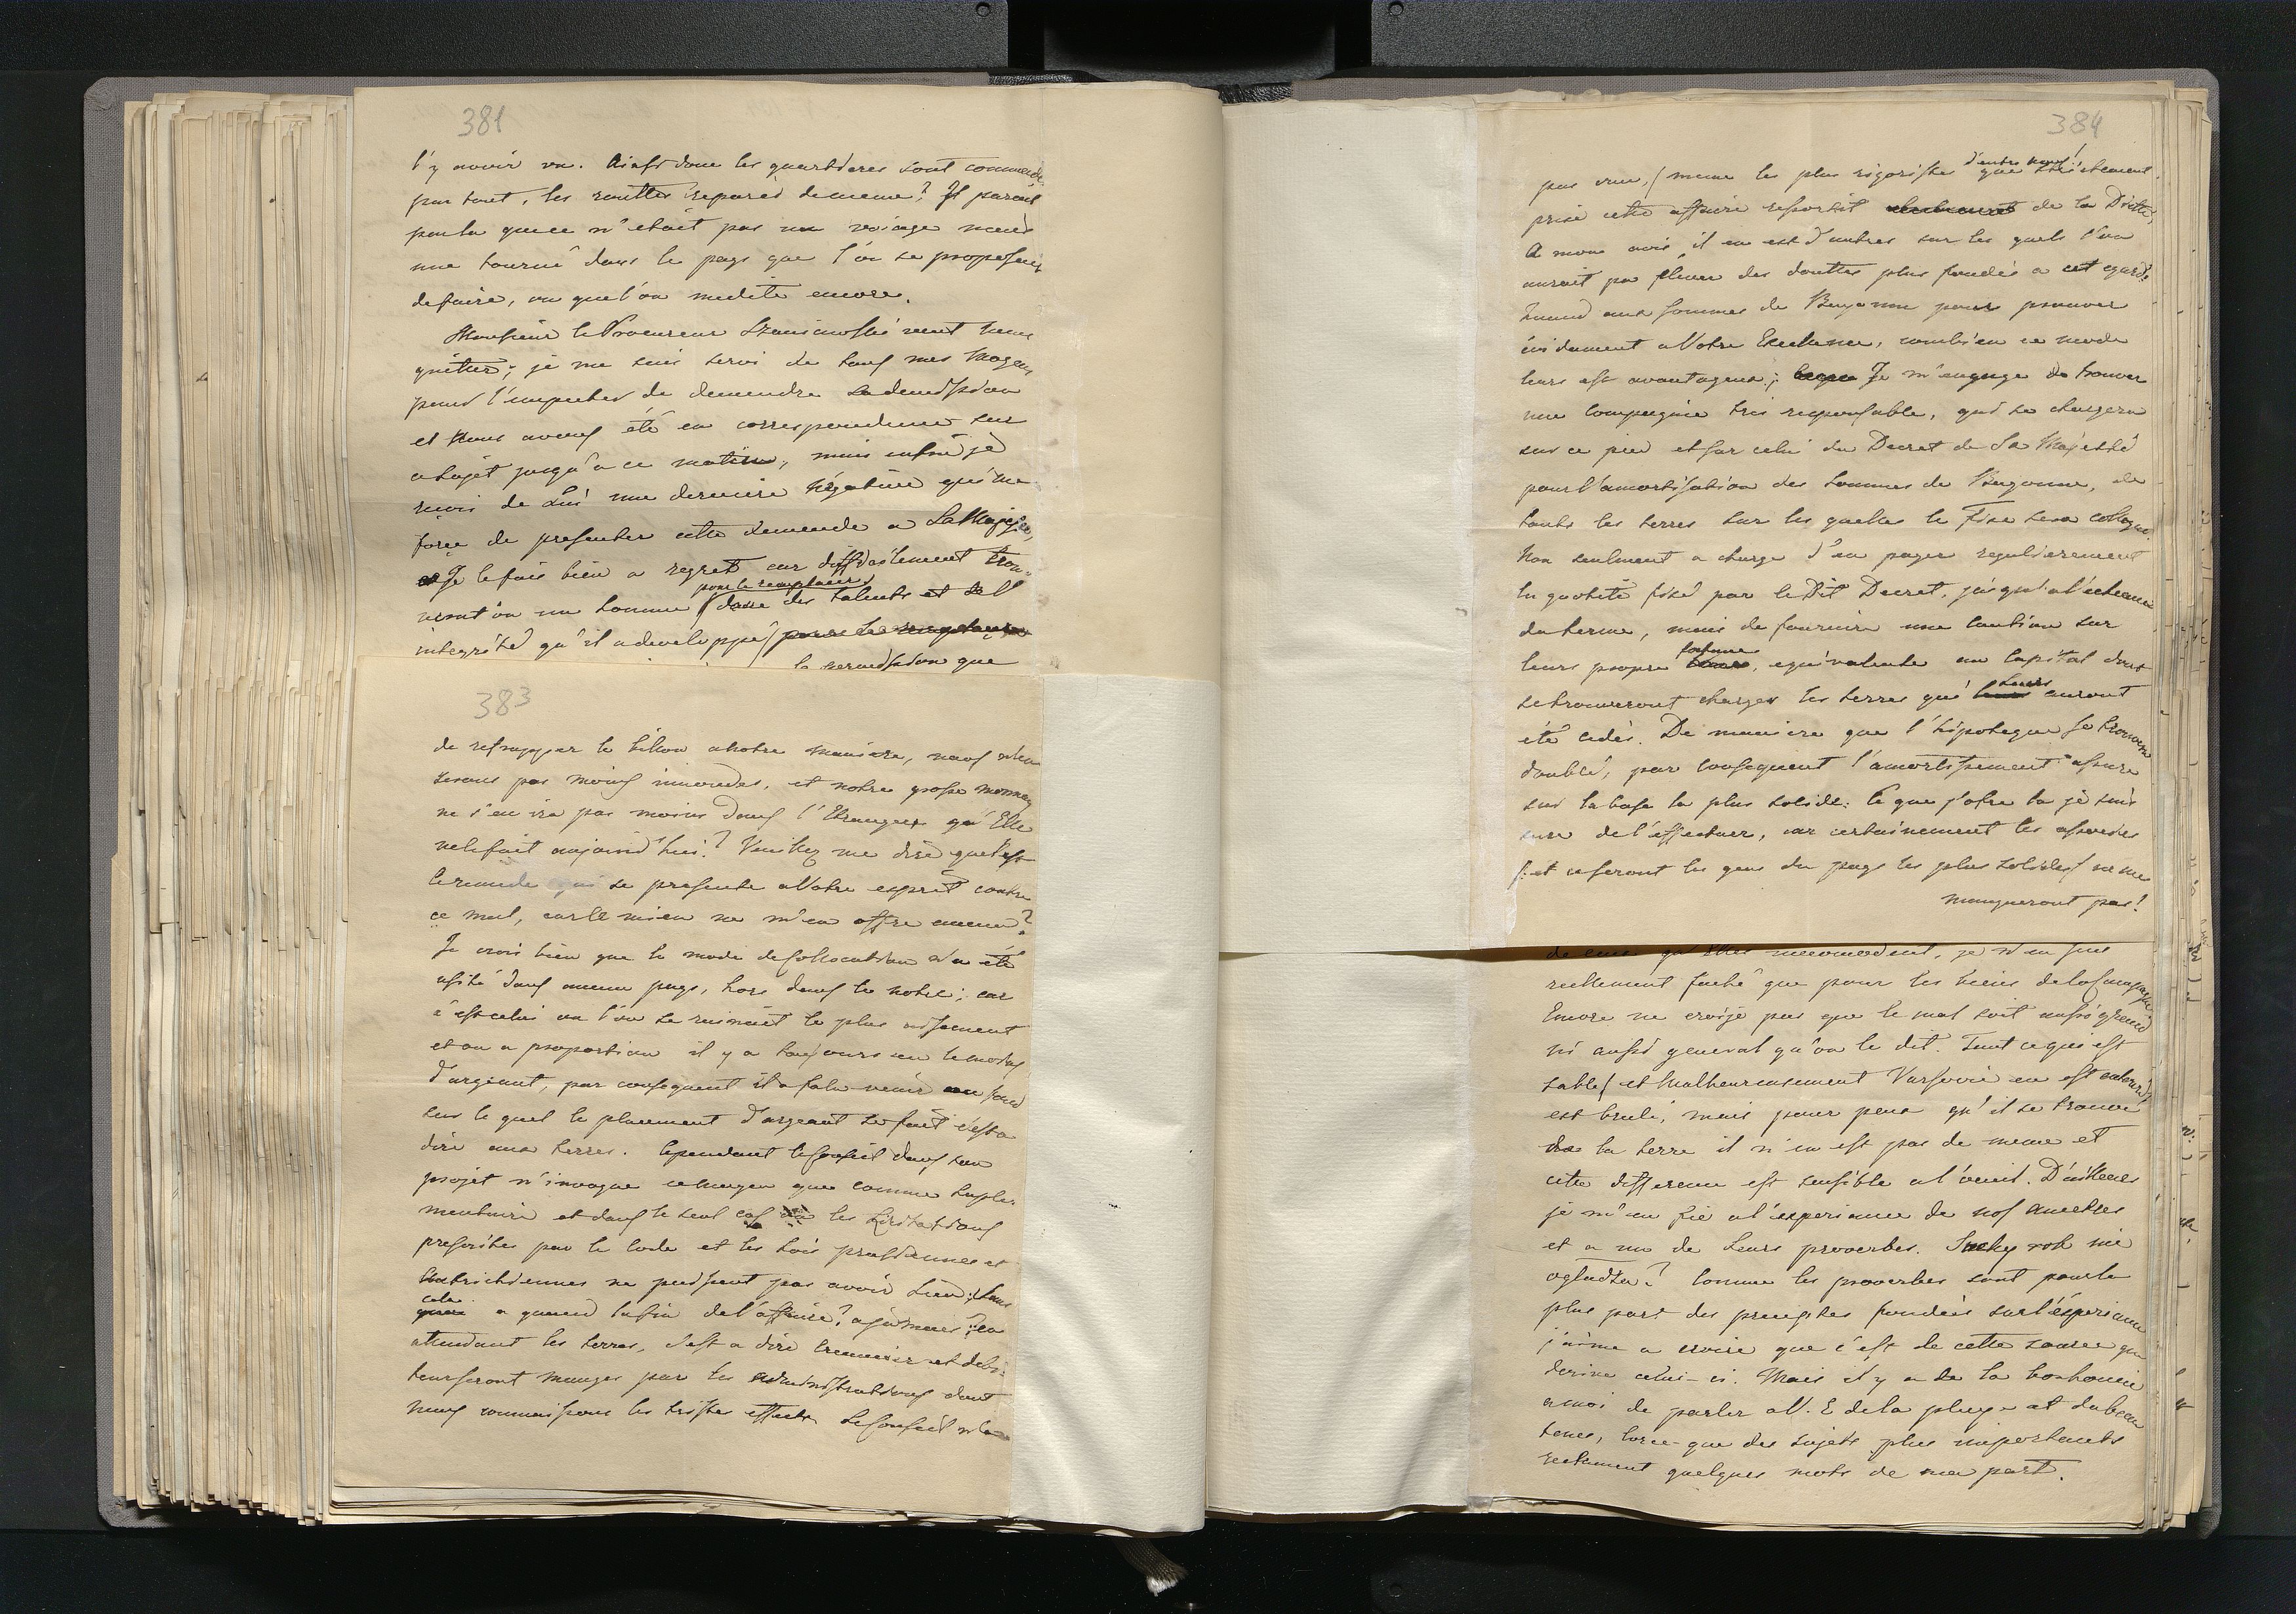 381
l'y avoir vu. Ainsi donc les quartieres sont commendé
par tout, les routtes reparés de meme? Il paroit
par la que ce n'etait pas un voiage mais
une tourné dans le pays que l'on se proposait
de faire, ou que l'on medite encore.
Monsieur le Procureur Szaniawski veut nous
quitter; je me suis servi de tous mes moyens
pour l'empecher de demender sa demission
et nous avons été en correspondence sur
ce sujet jusqu'a ce matin; mais enfin je
reçois de lui une derniere négative qui me
force de presenter cette demende a Sa Majesté,
Je le fais bien a regret car difficilement trou-
pour le remplacer
verat'on un homme doué des talents et de l'
integrité qu'il a developpé pour le remplacer
la permission que
383
de refrapper le billon a notre maniere, nous n'en
serons pas moins innondés, et notre grosse monnoy
ne s'en ira pas moins dans l'Etranger qu'Elle
ne le fait aujourd'hui? Veuillez me dire quel est
le remede qui se presente a Votre esprit contre
ce mal, car le mien ne m'en offre aucun?
Je crois bien que le mode de collocation n'a été
usité dans aucun pays, hors dans le notre; car
c'est celui ou l'on se ruinait le plus aisement
et ou a proportion il y a toujours eu le moins
d'argeant, par consequent il a falu venir au fond
sur le quel le placement d'argeant se fait c'est a
dire aux terres. Cependant le Conseil dans son
projet n'invoque ce moyen que comme suple-
mentaire et dans le seul cas ou les Licitations
prescrites par le Code et les Lois prussiennes et
Autrichiennes ne puissent pas avoir Lieu; sans
cela
a quand la fin de l'affaire? a jamais; en
attendant les terres, c'est a dire creancier et debi-
teur seront mangés par les administrations dont
nous connaissons les tristes effects. Le Conseil n'a
384
d'entre nous!
pas cru, (meme les plus rigoristes que strictement
prise cette affaire resortit de la Diette,
A mon avis il en est d'autres sur les quels l'on
aurait pu elever des douttes plus fondés a cet egard.
Quand aux sommes de Bayonne pour prouver
évidament a Votre Excelence, combien ce mode
leurs est avantageux; Je m'engage de trouver
une compagnie tres responsable, qui se chargera
sur ce pied et sur celui du Decret de Sa Majesté
pour l'amortisation des sommes de Bayonne, de
touts les terres sur les quelles le Fisc sera colloqué
Non seulment a charge d'en payer regulierement
la quotité fixé par le Dit Decret, jusqu'a l'echeance
du terme, mais de fournire une Caution sur
fortune
leurs propre terres, equivalente au Capital dont
leurs
se trouveront charger les terres qui leurs auront
été cedés. De maniere que l'hipoteque se trouvera
doublé, par consequent l'amortissement assuré
sur la base la plus solide: Ce que j'ofre la je suis
sure de l'effectuer, car certainement les associés
(: et ce seront les gens du pays les plus solides) ne me
manqueront pas!
de ceux qu'Elles incomodent, je n'en suis
reellement faché que pour les biens de la campagne.
Encore ne croije pas que le mal soit aussi grand
ni aussi general qu'on le dit. Tout ce qui est
sable (et malheureusement Varsovie en est entouré)
est brulé, mais pour peu qu'il se trouve
de la terre il n'en est pas de meme et
cette difference est sensible a l'oeuil. D'ailleurs
je m'en fie a l'experiance de nos Ancetres
et a un de leurs proverbes. Suchy rok nie
ogładza? Comme les proverbes sont pour la
plus part des preuptes fondés sur l'experiance
j'aime a croire que c'est de cette source que
derive celui-ci. Mais il y a de la bonhomie
a moi de parler a V. E de la pluye et du beau
tems, lorce-que des sujets plus importants
reclament quelques mots de ma part.